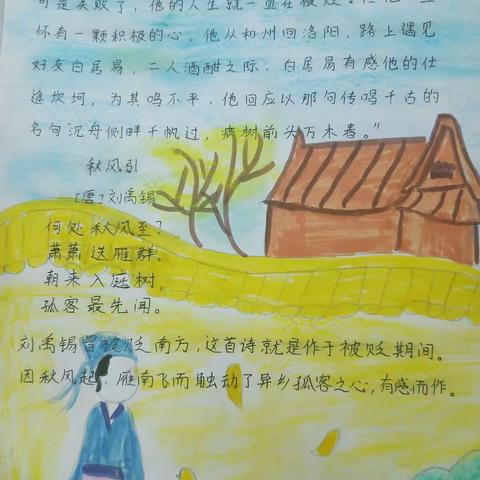 可是失败了，他的人生就一直在被贬。
怀有一颗积极的心，他从和州回洛阳，路上遇见
好友白居易，二人酒酣之际，白居易有感他的仕
途坎坷，为其鸣不平，他回应以那句传唱千古的
名句“沉舟侧畔千帆过，病树前头万木春。”
秋风引
［唐］刘禹锡
何处秋风至？
萧萧送雁群。
朝来入庭树，
孤客最先闻。
刘禹锡曾被贬南方，这首诗就是作于被贬期间。
因秋风起、雁南飞而触动了异乡孤客之心，有感而作。